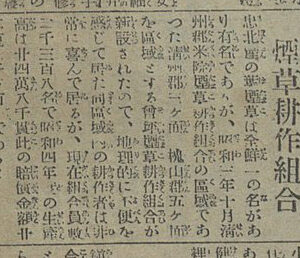 煙草耕作組合
忠北産の葉煙草は全鮮一の名があ
り有名であるが、昭和三年十月清
州郡米院煙草耕作組合の區域であ
つた淸州郡二ケ面、槐山郡五ケ面
を區域とする曾坪煙草耕作組合が
新設されたので、地理的に不便を
感じて居た同區域内の耕作者は非
常に喜んで居るが、現在組合員數
二千三百八名で昭和四年の生産
高は廿四萬八千貫此の賠償金額廿